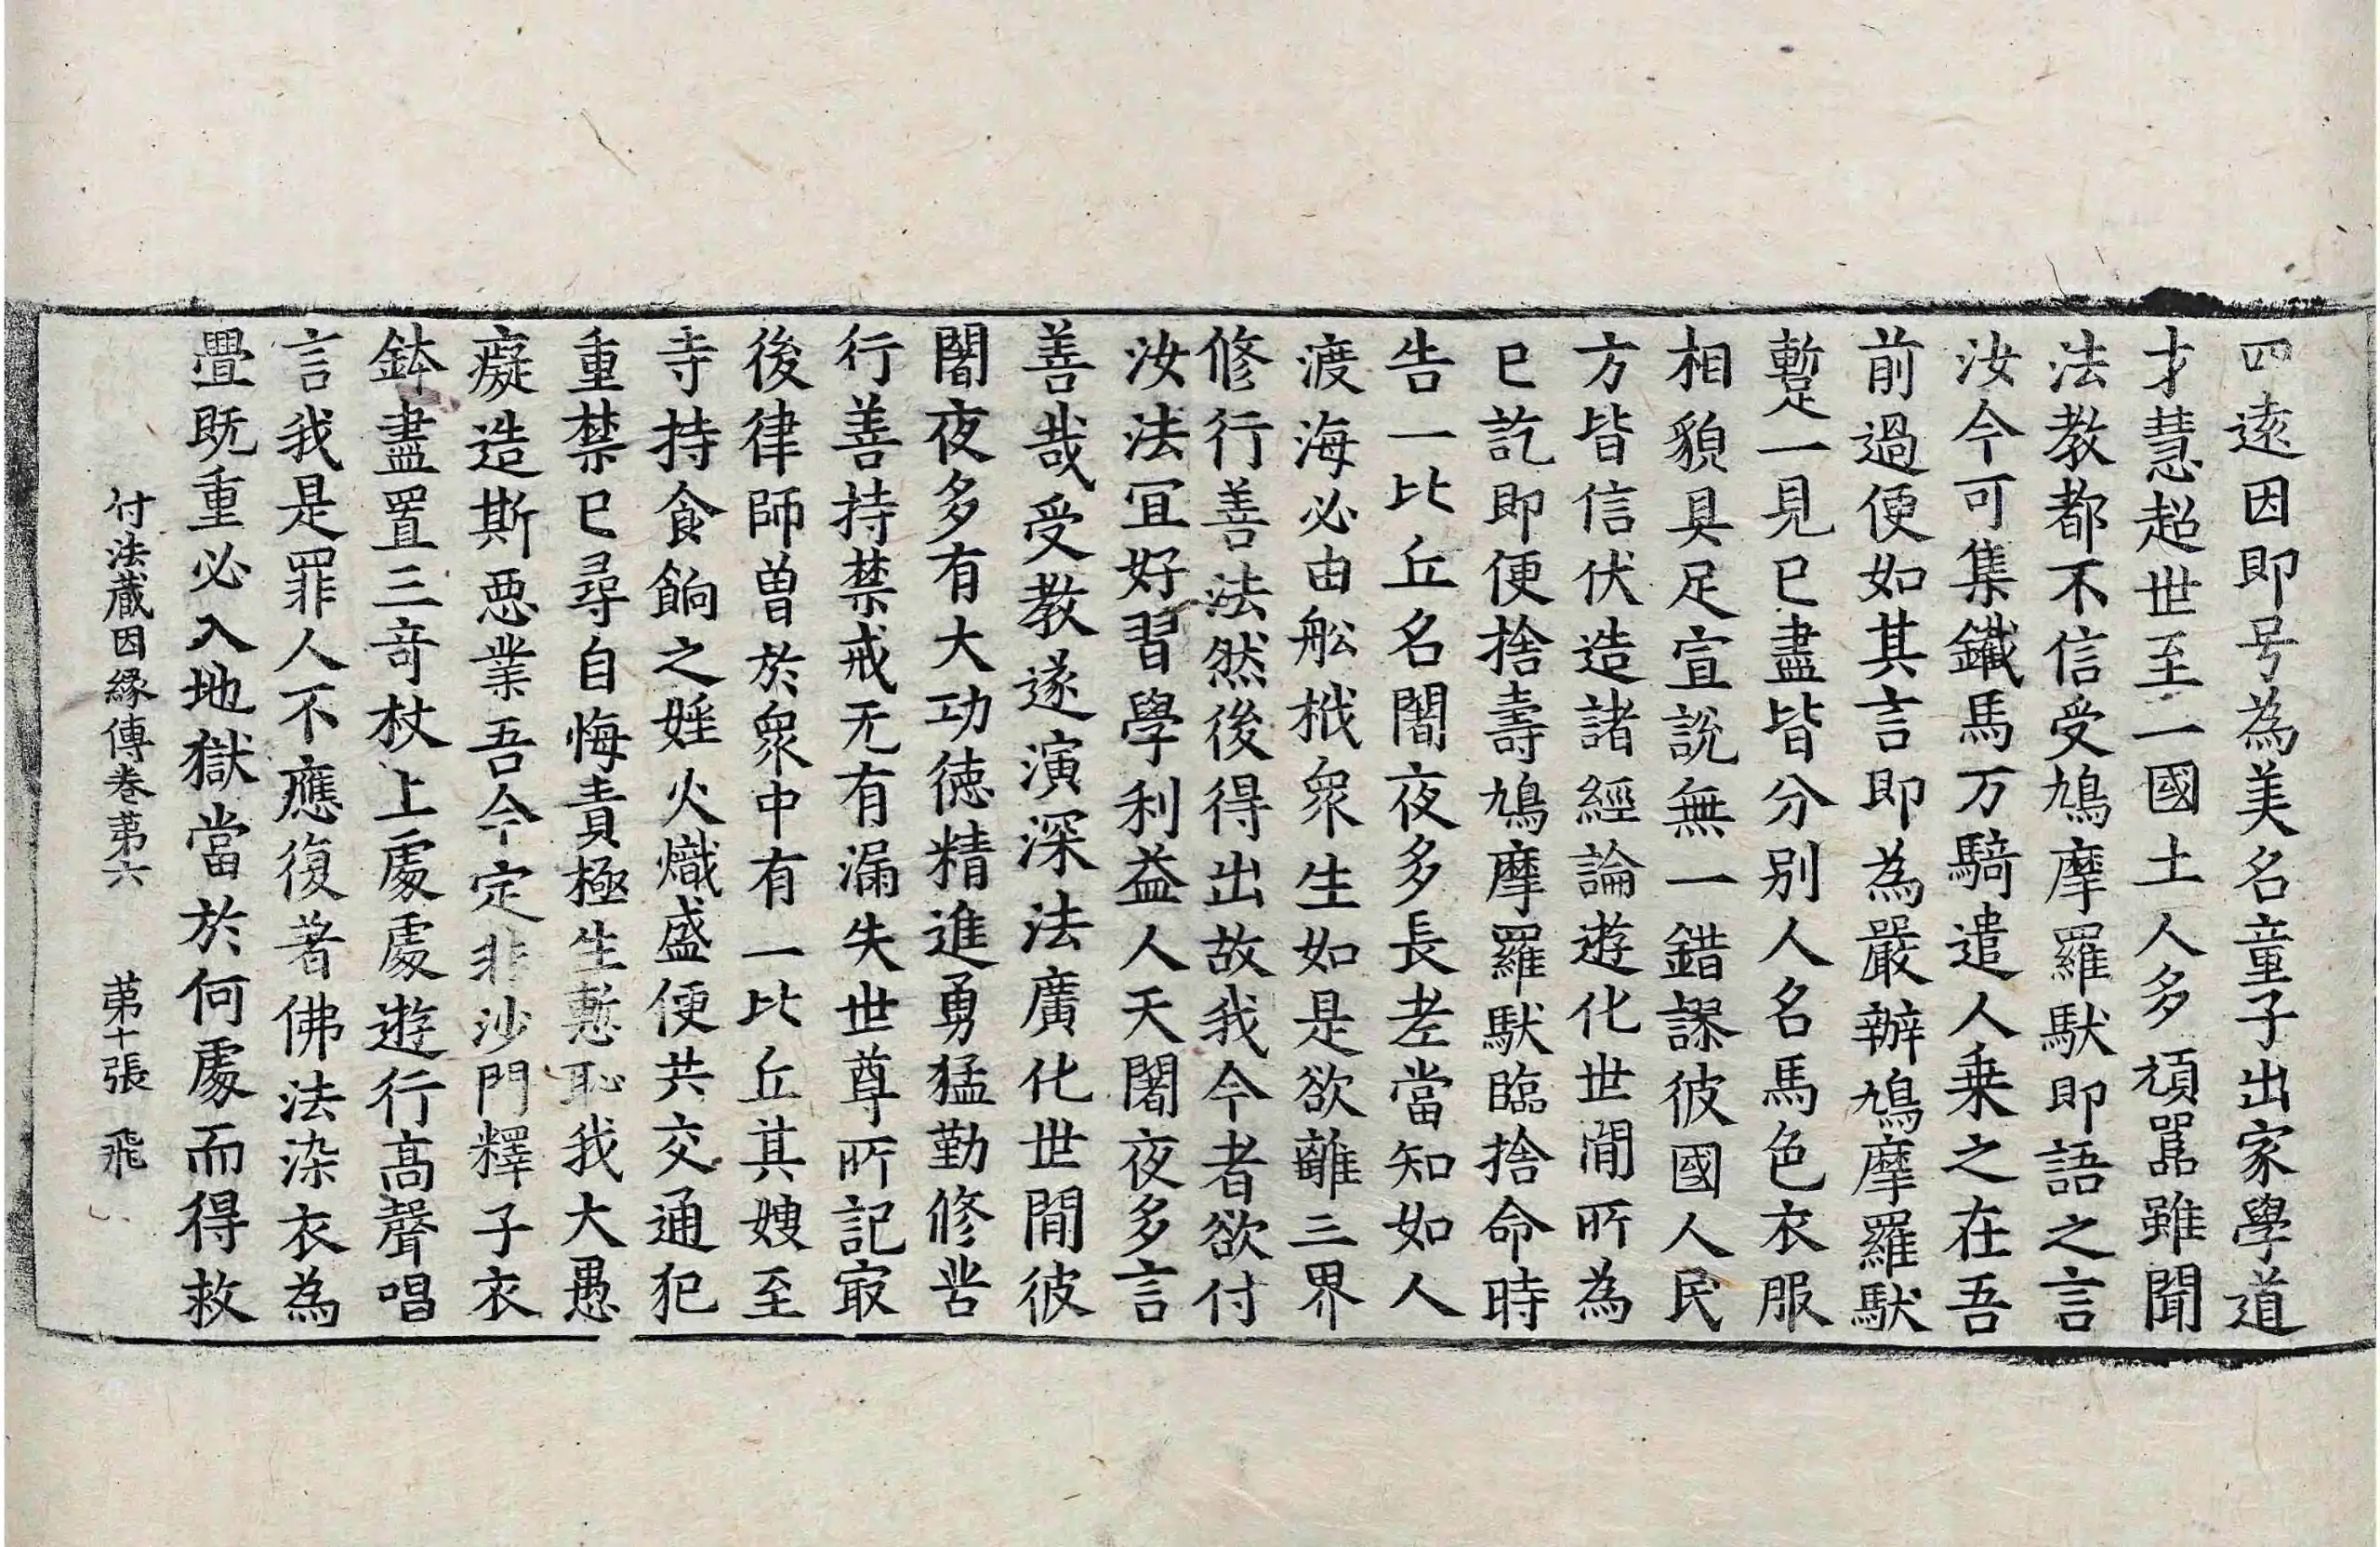 四遠因即号為美名童子出家學道
才慧超世至一國土人多頑嚚雖聞
法教都不信受鳩摩羅馱即語之言
汝今可集鐵馬万騎遣人乗之在吾
前過便如其言即為嚴辦鳩摩羅馱
蹔一見已盡皆分別人名馬色衣服
相貌具足宣說無一錯謬彼國人民
方皆信伏造諸經論遊化世間所為
已訖即便捨壽鳩摩羅馱臨捨命時
告一比丘名闍夜多長老當知如人
渡海必由舩栰衆生如是欲離三界
修行善法然後得出故我今者欲付
汝法冝好習學利益人天闍夜多言
善哉受教遂演深法廣化世間彼
闍夜多有大功徳精進勇猛勤修苦
行善持禁戒无有漏失世尊所記㝡
後律師曽於衆中有一比丘其嫂至
寺持食餉之婬火熾盛便共交通犯
重禁已尋自悔責極生慙恥我大愚
癡造斯惡業吾今定非沙門釋子衣
鉢盡置三奇杖上處處遊行高聲唱
言我是罪人不應復著佛法染衣為
罪既重必入地獄當於何處而得救
付法蔵因縁傳巻苐六　苐十張　飛